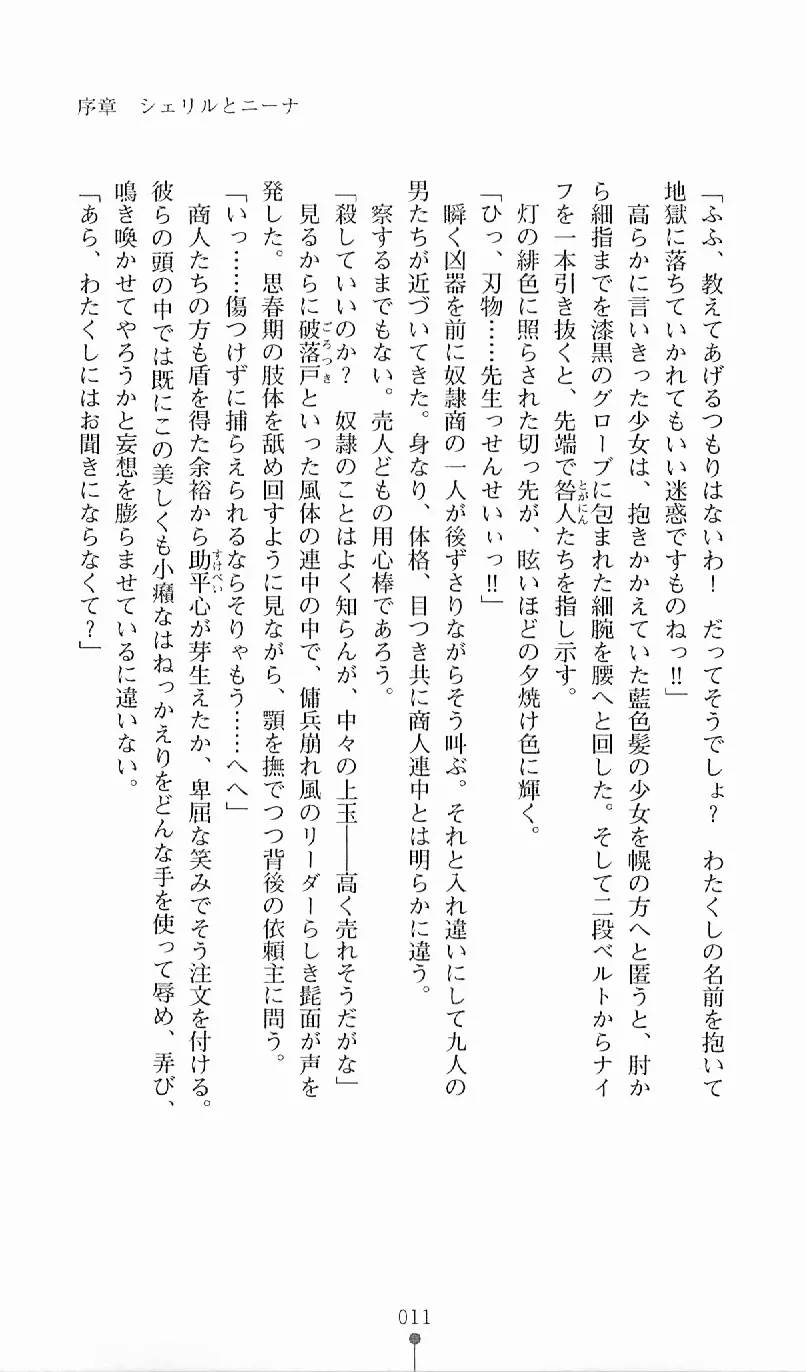 序章　シェリルとニーナ
「ふふ、教えてあげるつもりはないわ！　だってそうでしょ？　わたくしの名前を抱いて
地獄に落ちていかれてもいい迷惑ですものねっ!!」
　高らかに言いきった少女は、抱きかかえていた藍色髪の少女を幌の方へと匿うと、肘か
ら細指までを漆黒のグローブに包まれた細腕を腰へと回した。そして二段ベルトからナイ
フを一本引き抜くと、先端で咎人たちを指し示す。
　灯の緋色に照らされた切っ先が、眩いほどの夕焼け色に輝く。
「ひっ、刃物……先生っせんせいぃっ!!」
　瞬く凶器を前に奴隷商の一人が後ずさりながらそう叫ぶ。それと入れ違いにして九人の
男たちが近づいてきた。身なり、体格、目つき共に商人連中とは明らかに違う。
　察するまでもない。売人どもの用心棒であろう。
「殺していいのか？　奴隷のことはよく知らんが、中々の上玉――高く売れそうだがな」
　見るからに破落戸といった風体の連中の中で、傭兵崩れ風のリーダーらしき髭面が声を
発した。思春期の肢体を舐め回すように見ながら、顎を撫でつつ背後の依頼主に問う。
「いっ……傷つけずに捕らえられるならそりゃもう……へへ」
　商人たちの方も盾を得た余裕から助平心が芽生えたか、卑屈な笑みでそう注文を付ける。
彼らの頭の中では既にこの美しくも小癪なはねっかえりをどんな手を使って辱め、弄び、
鳴き喚かせてやろうかと妄想を膨らませているに違いない。
「あら、わたくしにはお聞きにならなくて？」
011